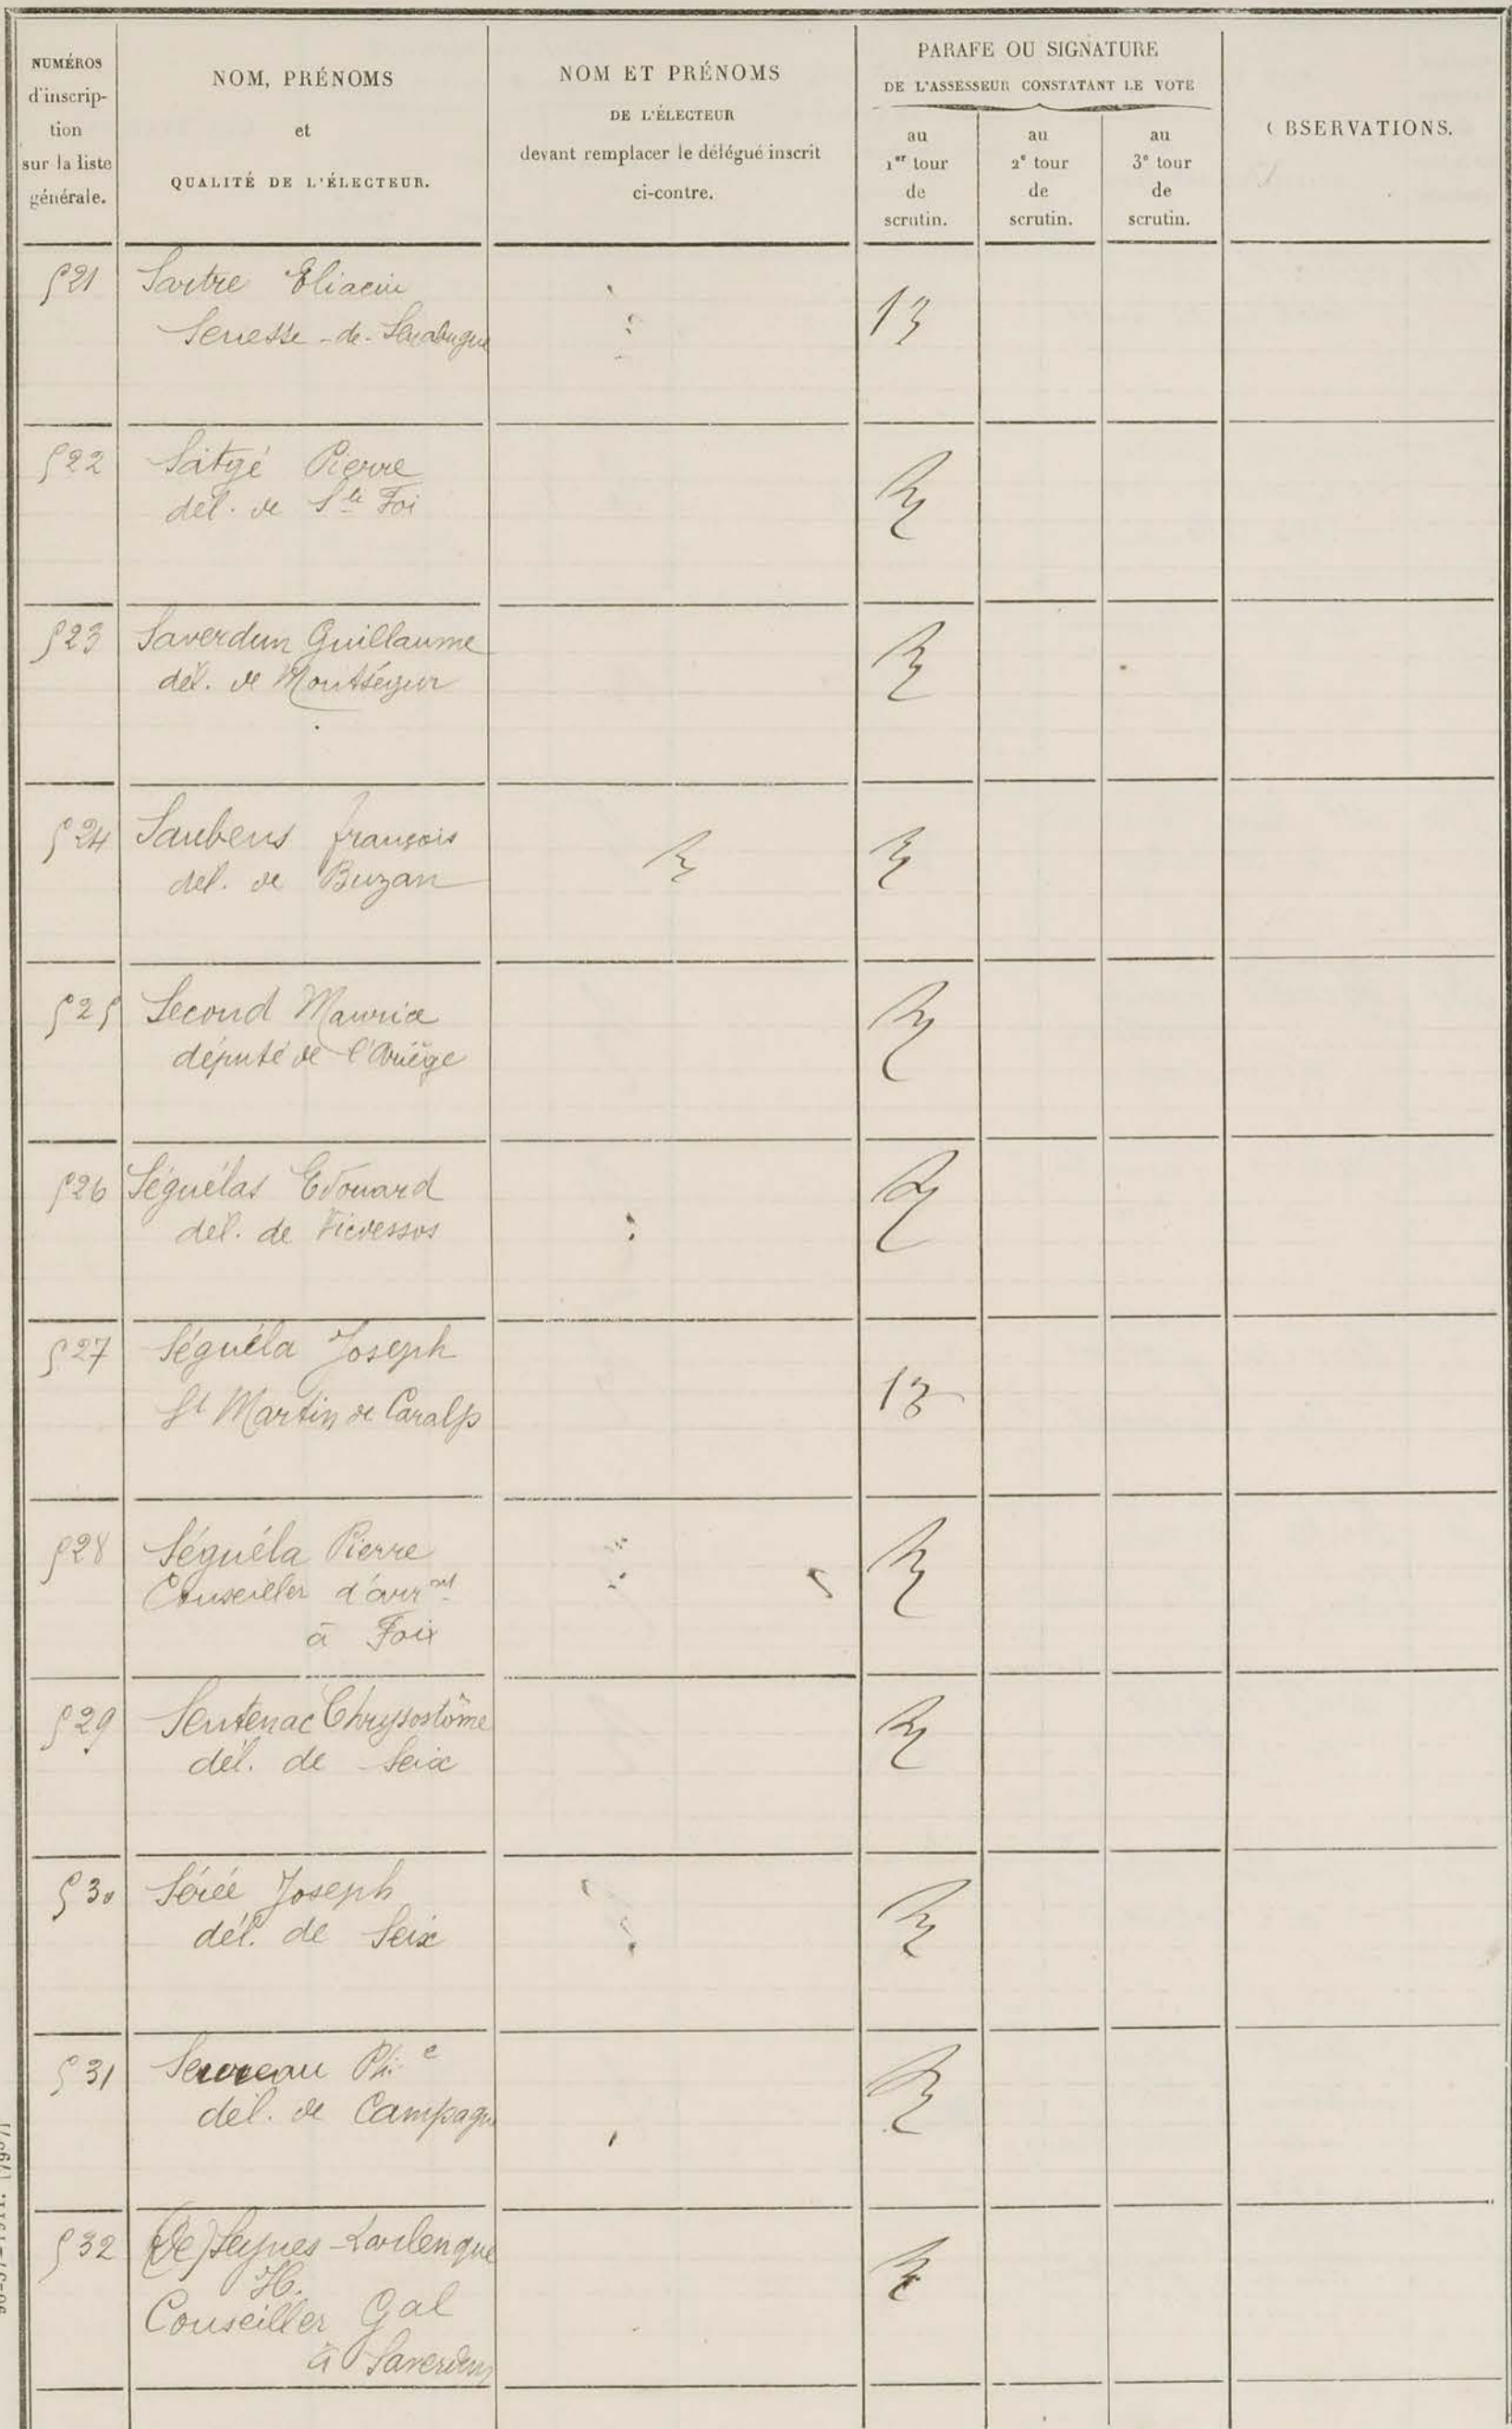 NUMÉROS
d'inscrip-
tion
sur la liste
générale.
NOM, PRÉNOMS
et
QUALITÉ DE L'ÉLECTEUR.
NOM ET PRÉNOMS
DE L'ÉLECTEUR
devant remplacer le délégué inscrit
ci-contre.
PARAFE OU SIGNATURE
DE L'ASSESSEUR CONSTATANT LE VOTE
au
1er tour
de
scrutin.
au
2e tour
de
scrutin.
au
3e tour
de
scrutin.
OBSERVATIONS.
521 Sartre Eliacin
Senesse-de-Senabugue
13
522 Satgé Pierre
dél. de Ste Foi
523 Saverdun Guillaume
dél. de Montségur
524 Saubens françois
dél. de Buzan
525 Second Maurice
député de l'Ariège
526 Séguélas Edouard
dél. de Vicdessos
527 Séguéla Joseph
St Martin de Caralp
13
528 Séguéla Pierre
Conseiller d'arrnt
à Foix
529 Sentenac Chrysostôme
dél. de Seix
530 Joseph
dél. de Seix
531
dél. de Campagne
532 (de) Seynes-Larlenque
H.
Conseiller Gal
à Saverdun